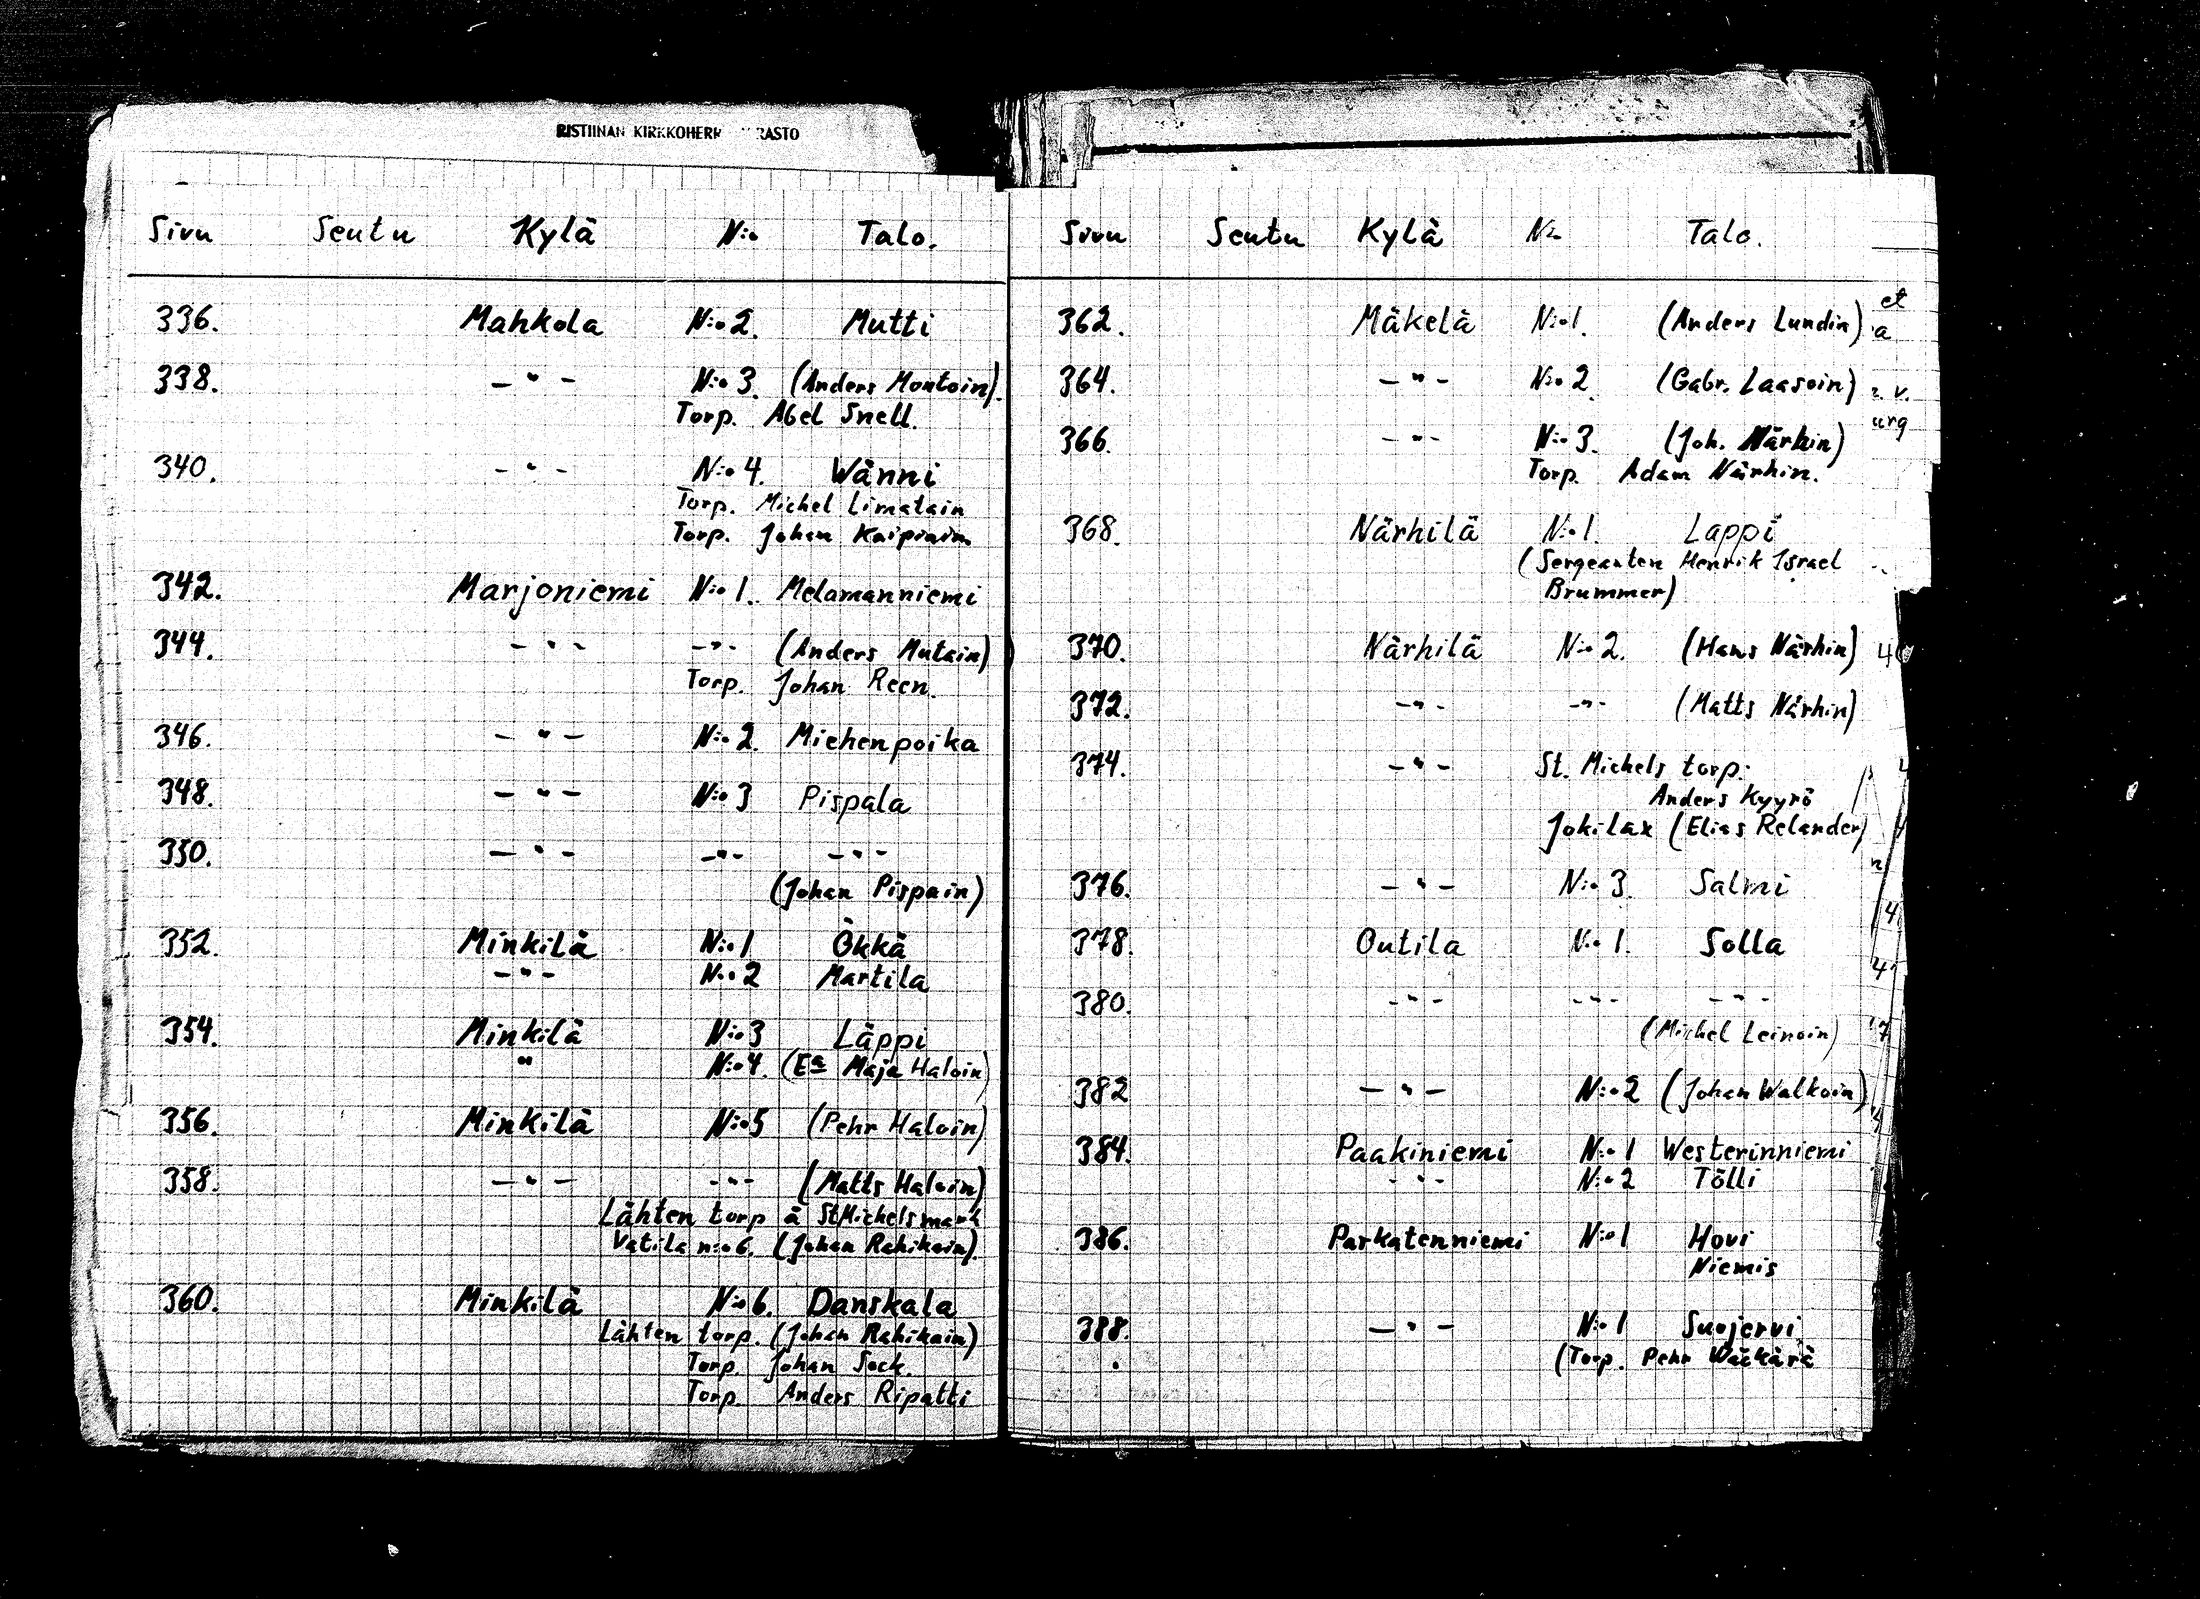 RISTIINAN KIRKKOHERR RASTO
Sivu Seutu Kylä N:o Talo.
336. Mahkola N:o 2. Mutti
338. — " — N:o 3. (Anders Montoin).
Torp. Abel Snell.
340. — " — N:o 4. Wänni
Torp. Michel Limatain
Torp. Johan Kaipiain
342. Marjoniemi N:o 1. Melamanniemi
344. — " — — " — (Anders Mutain)
Torp. Johan Reen.
346. — " — N:o 2. Miehenpoika
348. — " — N:o 3 Pispala
350. — " — — " — — " —
(Johan Pispain)
352. Minkilä N:o 1 Ökkä
— " — N:o 2 Martila
354. Minkilä N:o 3 Läppi
" N:o 4. (Ea Maja Haloin)
356. Minkilä N:o 5 (Pehr Haloin)
358. — " — — " — (Matts Haloin)
Lähten torp å St Michels mark
Vatila n:o 6. (Johan Rahikain).
360. Minkilä N:o 6. Danskala
Lähten torp. (Johan Rahikain)
Torp. Johan Sock.
Torp. Anders Ripatti
Sivu Seutu Kylä N:o Talo.
362. Mäkelä N:o 1. (Anders Lundin)
364. — " — N:o 2. (Gabr. Laasoin)
366. — " — N:o 3. (Joh. Närhin)
Torp. Adam Närhin.
368. Närhilä N:o 1. Lappi
(Sergeanten Henrik Israel
Brummer)
370. Närhilä N:o 2. (Hans Närhin)
372. — " — — " — (Matts Närhin)
374. — " — St. Michels torp:
Anders Kyyrö
Jokilax (Elias Relander)
376. — " — N:o 3. Salmi
378. Outila N:o 1. Solla
380. — " — — " — — " —
(Michel Leinoin)
382 — " — N:o 2 (Johan Walkoin)
384. Paakiniemi N:o 1 Westerinniemi
— " — N:o 2 Tölli
386. Parkatenniemi N:o 1 Hovi
Niemis
388. — " — N:o 1 Suojervi
(Torp. Pehr Wäckärä